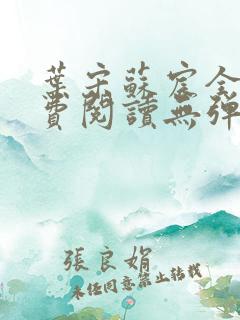 葉宗蘇宦全
費閱讀無彈
張良娟
未經同意禁止轉載